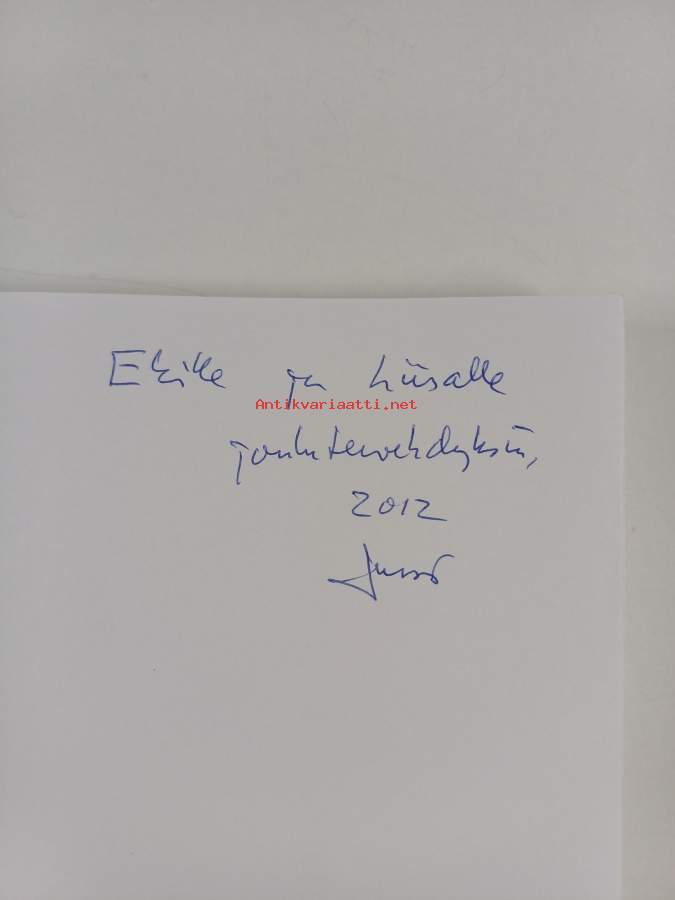 Ekille ja Liisalle
Antikvariaatti.net
joulutervehdyksin,
2012
Jussi